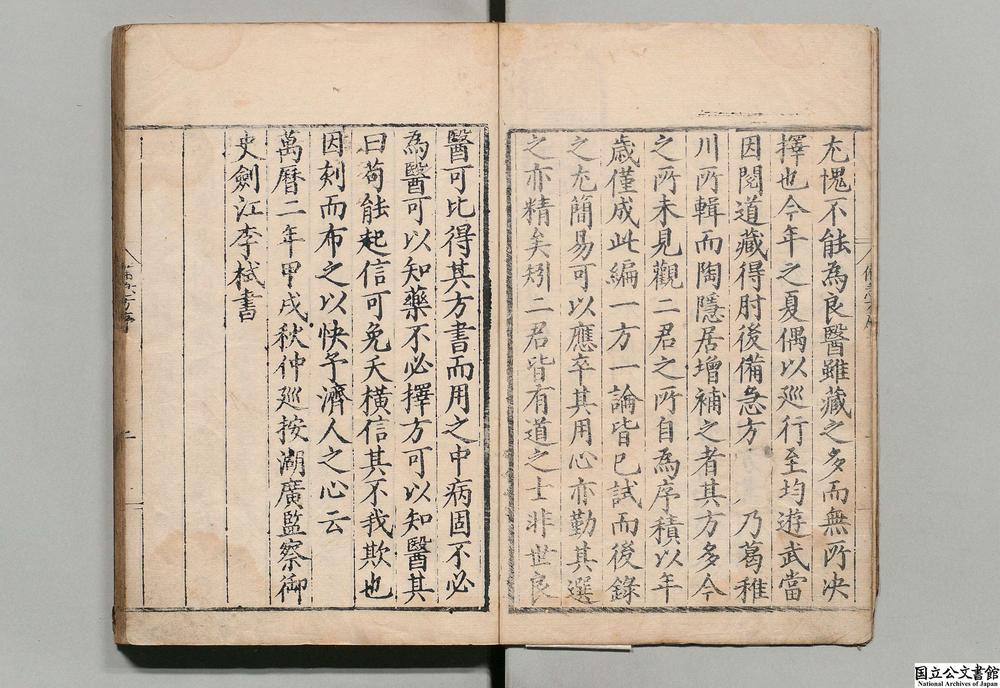 尢愧不能為良醫雖藏之多而無所决
擇也今年之夏偶以廵行至均遊武當
因閱道藏得肘後備急方乃葛稚
川所輯而陶隱居增補之者其方多今
之所未見觀二君之所自為序積以年
歲僅成此編一方一論皆已試而後錄
之尢簡易可以應卒其用心亦勤其選
之亦精矣矧二君皆有道之士非世良
醫可比得其方書而用之中病固不必
為醫可以知藥不必擇方可以知醫其
曰苟能起信可免夭橫信其不我欺也
因刻而布之以快予濟人之心云
萬曆二年甲戌秋仲廵按湖廣監察御
史劍江李栻書
国立公文書館
National Archives of Japan